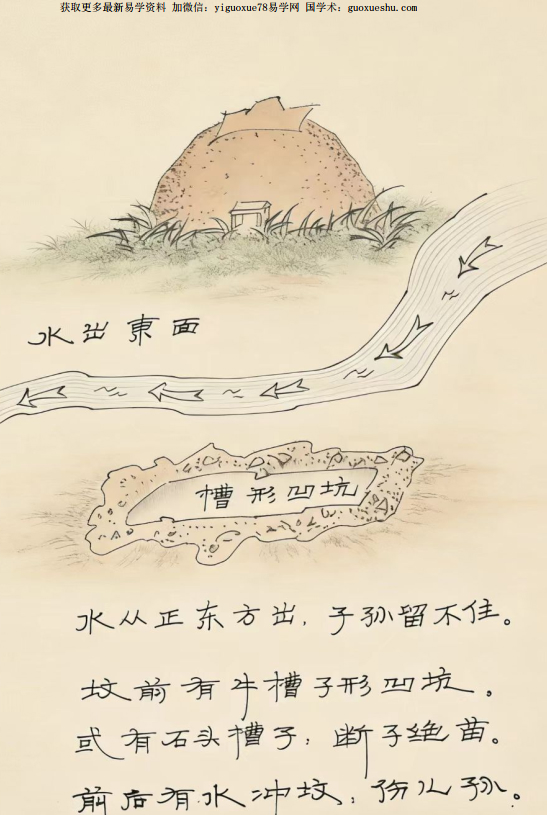 获取更多最新易学资料 加微信：yiguoxue78易学网 国学术：guoxueshu.com
水出東面
槽形凹坑
水从正东方出，子孙留不住。
坟前有牛槽子形凹坑。
或有石头槽子；断子绝苗。
前后有水冲坟；伤儿孙。